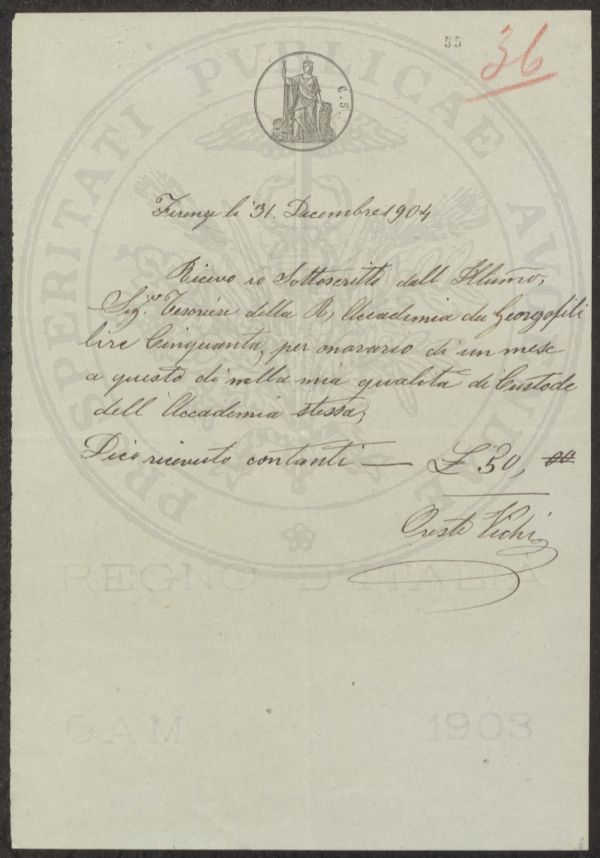 55
36
C. 5.
Firenze li 31. Decembre 1904
Ricevo io Sottoscritto dall Illumo,
Sigr. Tesoriere della R, Accademia dei Georgofili
lire Cinquanta, per onorario di un mese
a questo di nella mia qualita di Custode
dell Accademia stessa,
Dico ricevuto contanti — £ 50, 00
Oreste Vichi
PROSPERITATI PVBLICAE AVGENDAE
REGNO D'ITALIA
GAM 1903